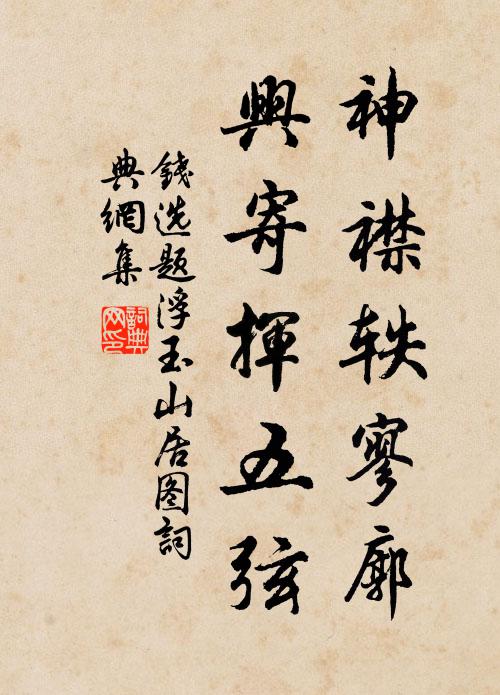 神襟轶寥廓
興寄揮五弦
錢选题浮玉山居图詞
典網集
詞典
网印